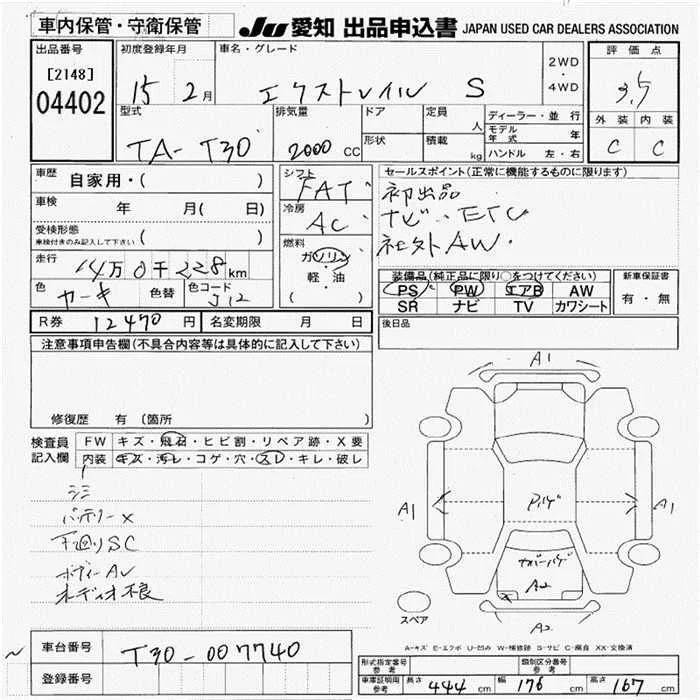 車内保管・守衛保管 JU 愛知 出品申込書 JAPAN USED CAR DEALERS ASSOCIATION
出品番号 初度登録年月 車名・グレード 2WD・4WD 評価点
[2148]
04402 15 2月 エクストレイル S 3.5
型式 排気量 ドア 定員 人 ディーラー・並行 外装 内装
TA-T30 2000 CC 形状 積載 kg モデル年式 年 C C
ハンドル 左・右
車歴 自家用・( ) シフト FAT セールスポイント(正常に機能するものに限ります)
車検 年 月( 日) 冷房 AC 初出品
受検形態 車検付きのみ記入して下さい ( ) ナビ・ETC
社外AW.
走行 14万0千228km 燃料 ガソリン 軽・油 ( )
色 カーキ 色替 色コード J12
装備品(純正品に限り○をつけてください) 新車保証書
PS PW エアB AW 有・無
SR ナビ TV カワシート
R券 12470円 名変期限 月 日 後日品
注意事項申告欄(不具合内容等は具体的に記入して下さい)
修復歴 有 (箇所
検査員記入欄 FW キズ・飛石・ヒビ割・リペア跡・X要
内装 キズ・汚レ・コゲ・穴・スレ・キレ・破レ
シミ
バッテリーX
下廻りSC
ボディーAU
オーディオ不良
A1
A1 A1
A2
A2
スペア
A-キズ E-エクボ U-凹み W-補修跡 S-サビ C-腐食 XX-交換済
車台番号 T30-007740
登録番号
形式指定番号 参考 類別区分番号 参考
車庫証明用 参考 長さ 444 cm 幅 176 cm 高さ 167 cm